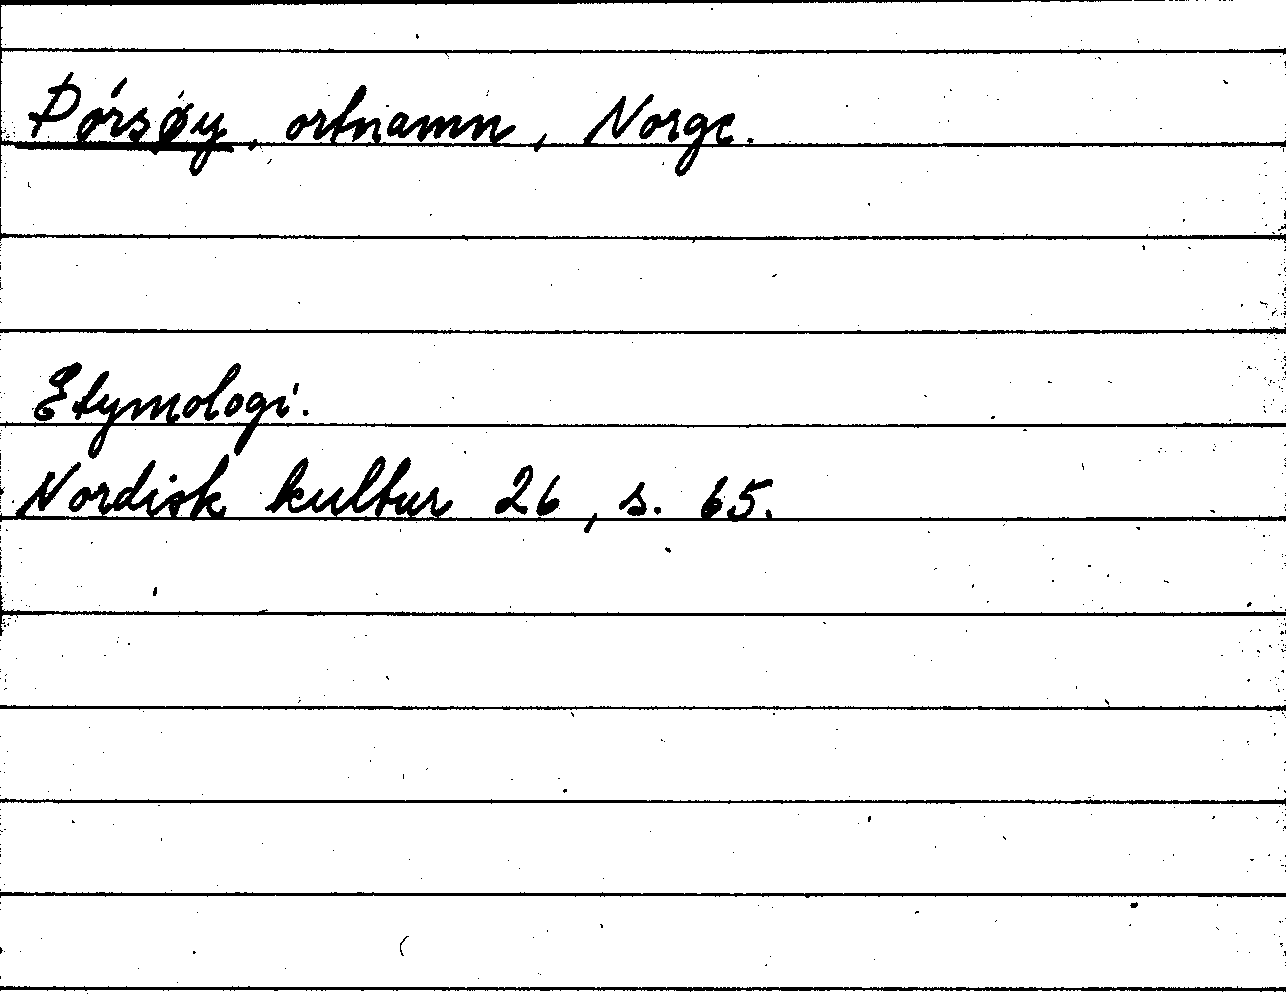 Þórsøy, ortnamn, Norge.
Etymologi.
Nordisk kultur 26, s. 65.